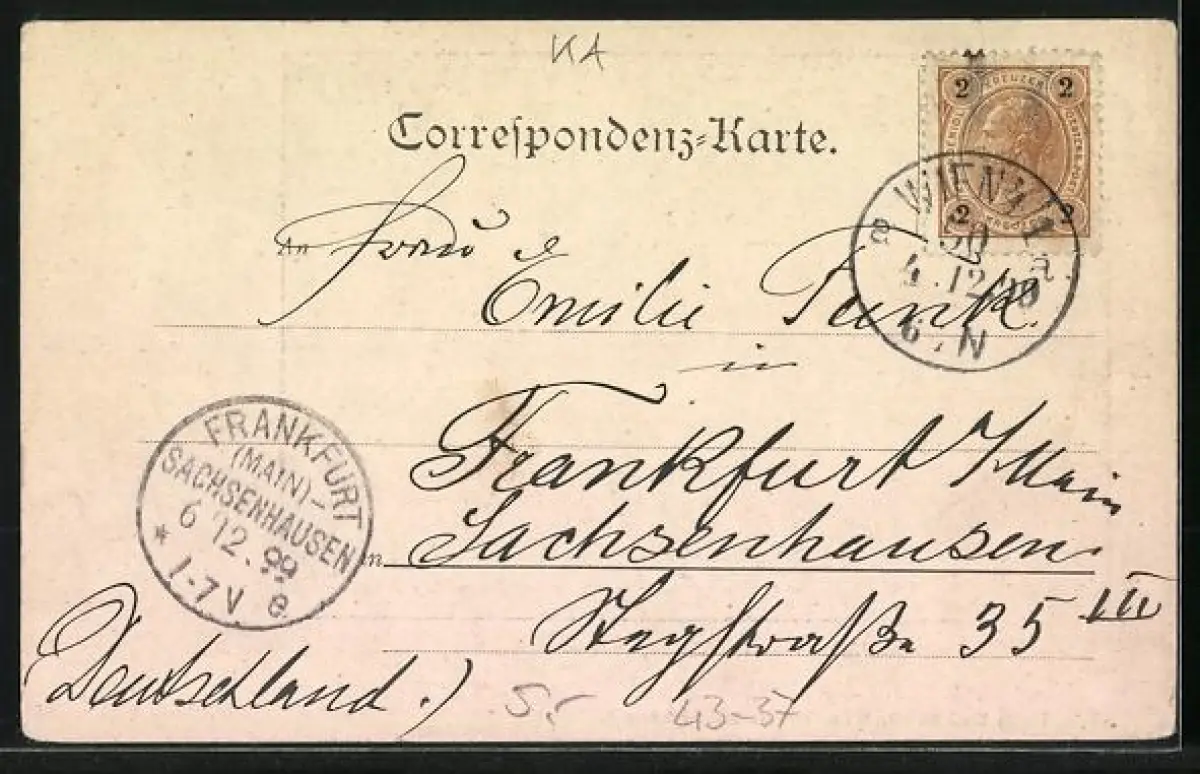 KA
Correspondenz-Karte.
2 KREUZER 2
2 2
WIEN 4/1
50 a
4.12.99
6.N
An Frau
Emilie Funk
in
Frankfurt / Main
FRANKFURT
(MAIN)-
SACHSENHAUSEN
6 12.99
* 1-7V e
in Sachsenhausen
Stegstraße 35 III
(Deutschland.)
S.
43-37